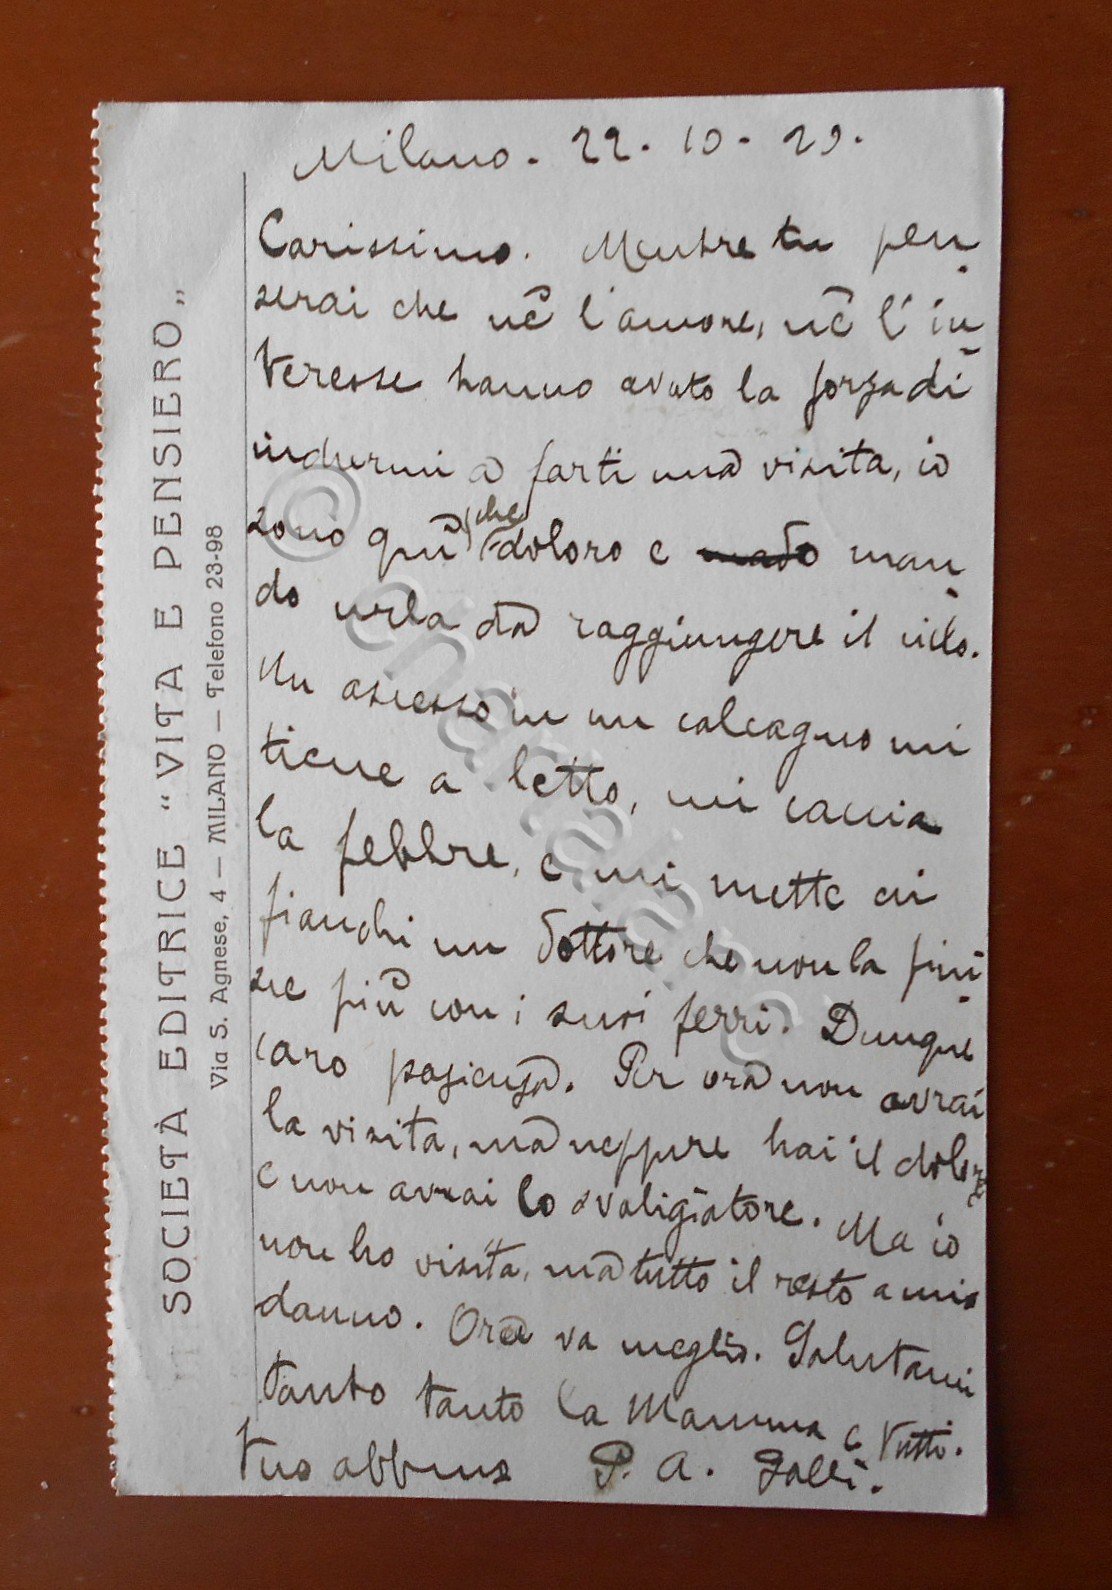 SOCIETÀ EDITRICE “VITA E PENSIERO„
Via S. Agnese, 4 — MILANO — Telefono 23-98
Milano - 22 - 10 - 29.
Carissimo. Mentre tu pen
serai che nè l'amore, nè l'in
teresse hanno avuto la forza di
indurmi a farti una visita, io
sono quì che doloro e man
do urla da raggiungere il cielo.
Un ascesso in un calcagno mi
tiene a letto, mi caccia
la febbre, e mi mette ai
fianchi un dottore che non la fini
sce più con i suoi ferri. Dunque
caro pazienza. Per ora non avrai
la visita, ma neppure hai il dolore
e non avrai lo svaligiatore. Ma io
non ho visita, ma tutto il resto a mio
danno. Ora va meglio. Salutami
tanto tanto la Mamma e tutti.
Tuo abbmo P. A. Galli.
© charta